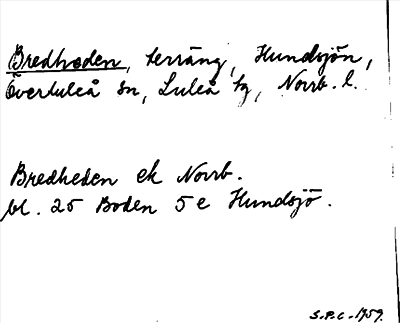 Bredheden, terräng, Hundsjön,
Överluleå sn, Luleå tg, Norrb. l.
Bredheden ek Norrb.
bl. 25 Boden 5 e Hundsjö.
S.P.C. 1959.